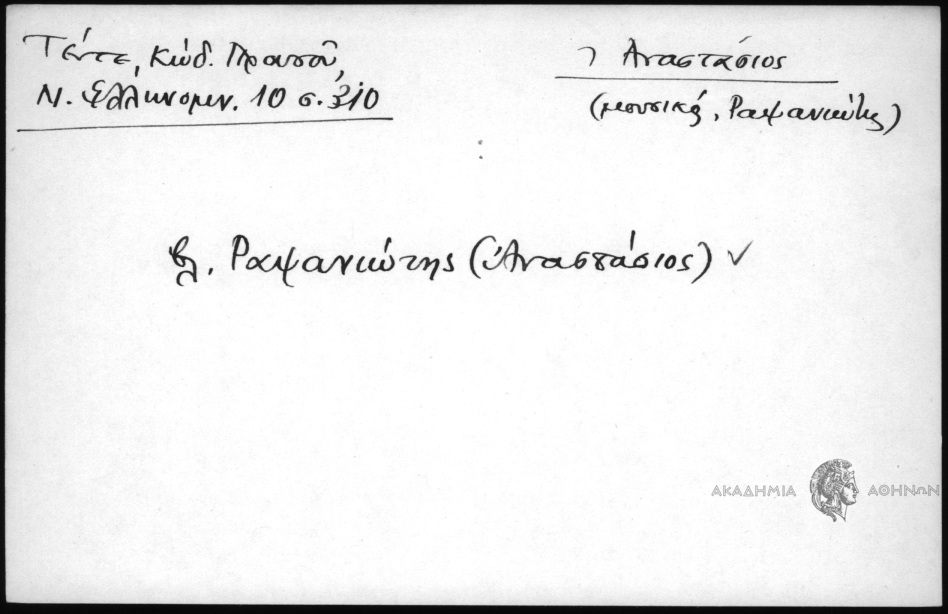 Τέντε, Κώδ. Πραστοῦ,
Ν. Ἑλληνομν. 10 σ. 310
Ἀναστάσιος
(μουσικός, Ραψανιώτης)
βλ. Ραψανιώτης (Ἀναστάσιος) ✓
ΑΚΑΔΗΜΙΑ ΑΘΗΝΩΝ